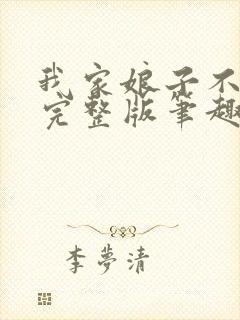 我家娘子不
完整版笔趣
李夢清